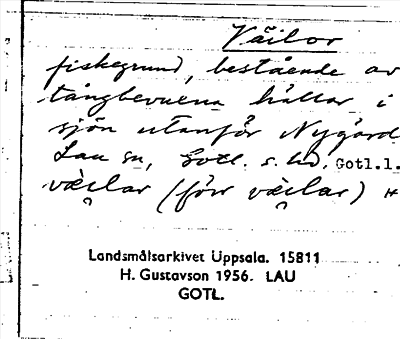 Väilor
fiskegrund, bestående av
tångbevuxna hällar i
sjön utanför Nygård
Lau sn, Gotl. s. hd, Gotl.l.
väilar (förr väilar) H
Landsmålsarkivet Uppsala. 15811
H. Gustavson 1956. LAU
GOTL.